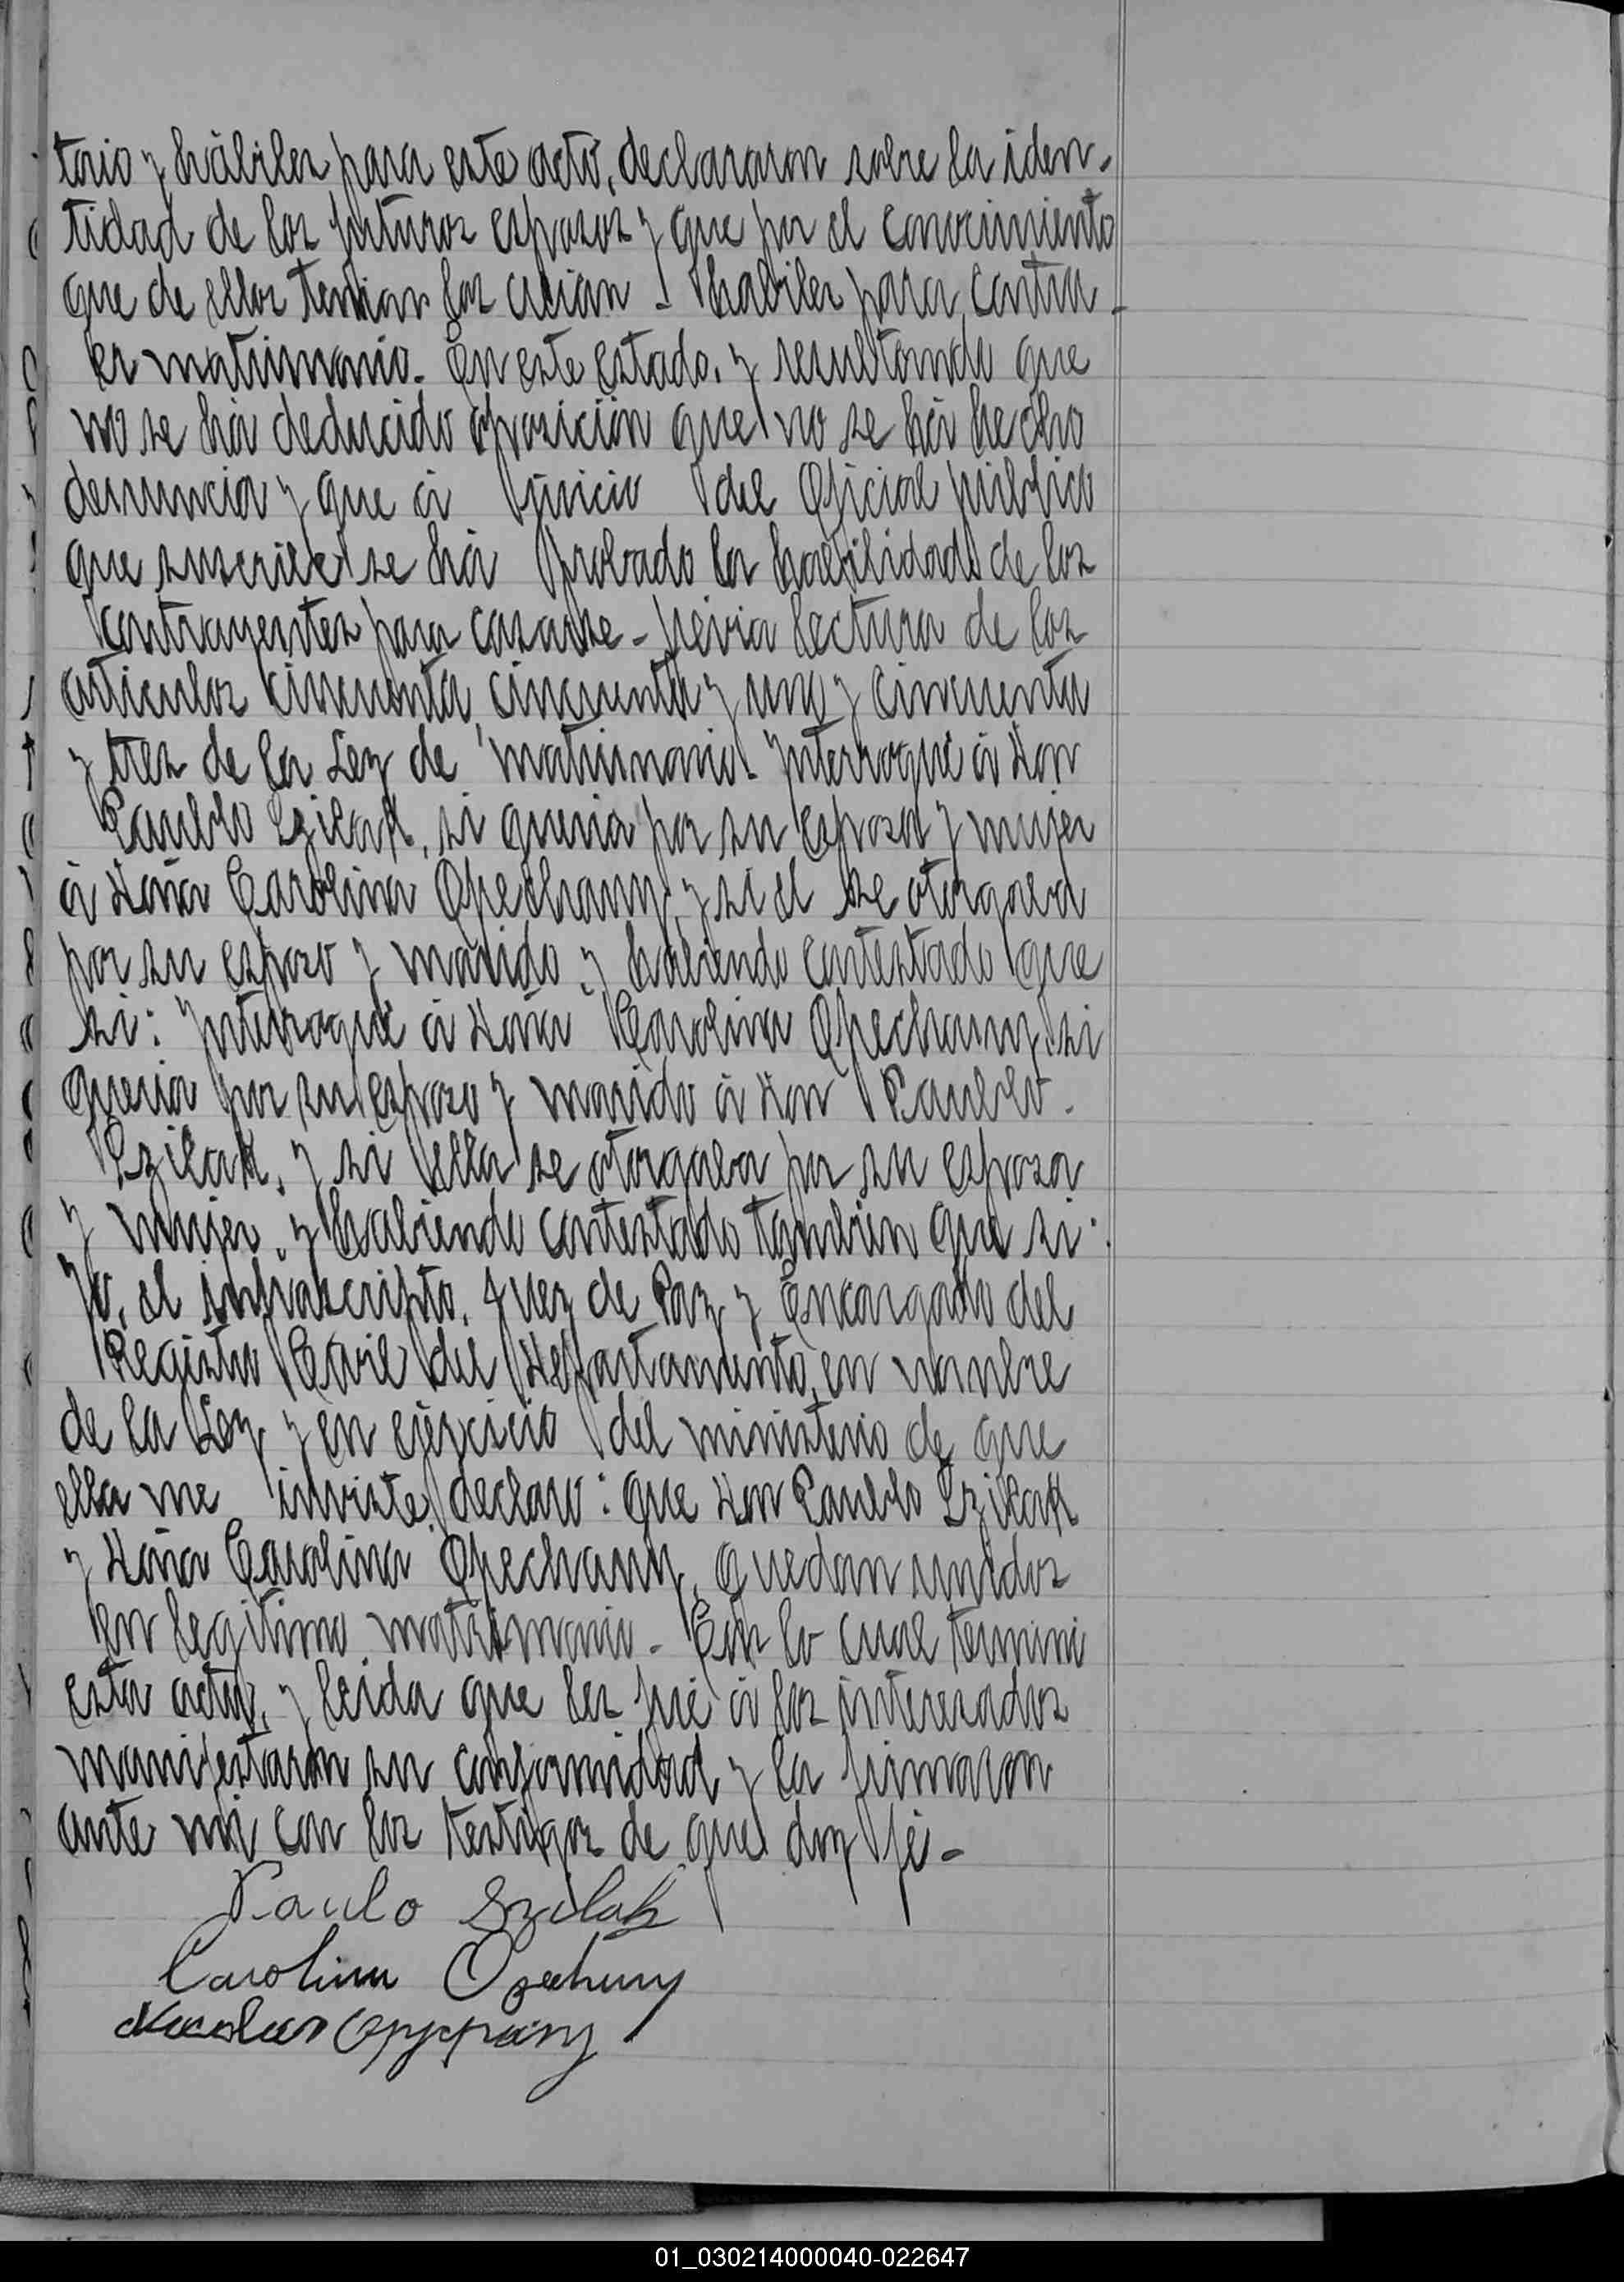 torio y hábiles para este acto, declararon sobre la iden-
tidad de los futuros esposos y que por el conocimiento
que de ellos tenian los creian - habiles para contra-
er matrimonio. En este estado, y resultando que
no se há deducido oposición que no se há hecho
denuncia y que á juicio del Oficial público
que suscribe se há probado la habilidad de los
contrayentes para casarse - prévia lectura de los
articulos cincuenta, cincuenta y uno y cincuenta
y tres de la Ley de matrimonio. Interrogué á Don
Paublo Szilak, si queria por su esposa y mujer
á Doña Carolina Opechany, y si él se otorgaba
por su esposo y marido, y habiendo contestado que
si: Interrogué á Doña Carolina Opechany, si
queria por su esposo y marido á Don Paublo
Szilak, y si ella se otorgaba por su esposa
y mujer, y habiendo contestado tambien que si:
Yo, el infrascripto, Juez de Paz y Encargado del
Registro Civil del Departamento, en nombre
de la Ley y en ejercicio del ministerio de que
ella me inviste, declaro: que Don Paublo Szilak
y Doña Carolina Opechany, quedan unidos
en legitimo matrimonio - Con lo cual terminó
esta acta, y leida que les fué á los interesados
manifestaron su conformidad y la firmaron
ante mi con los testigos de que doy fé -
Paulo Szilak
Carolina
01_030214000040-022647